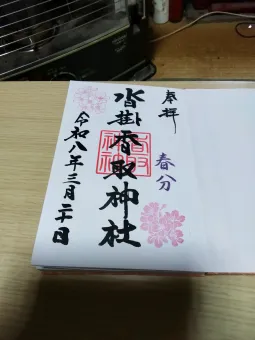 奉拝
春分
沓掛香取神社
令和八年三月二十日